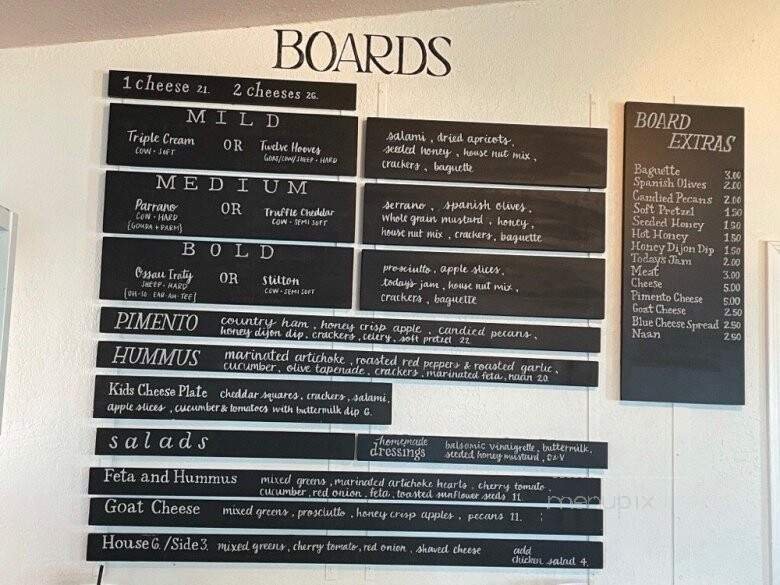 BOARDS
1 cheese 21. 2 cheeses 26.
MILD
Triple Cream OR Twelve Hooves
COW • SOFT GOAT/COW/SHEEP • HARD
salami, dried apricots,
seeded honey, house nut mix,
crackers, baguette
MEDIUM
Parrano OR Truffle Cheddar
COW • HARD COW • SEMI SOFT
[GOUDA + PARM]
serrano, spanish olives,
whole grain mustard, honey,
house nut mix, crackers, baguette
BOLD
Ossau Iraty OR Stilton
SHEEP • HARD COW • SEMI SOFT
[OH-SO EAR-AH-TEE]
prosciutto, apple slices,
today's jam, house nut mix,
crackers, baguette
PIMENTO country ham, honey crisp apple, candied pecans,
honey dijon dip, crackers, celery, soft pretzel 22
HUMMUS marinated artichoke, roasted red peppers & roasted garlic,
cucumber, olive tapenade, crackers, marinated feta, naan 20
Kids Cheese Plate cheddar squares, crackers, salami,
apple slices, cucumber & tomatoes with buttermilk dip 6.
salads
homemade
dressings
balsamic vinaigrette, buttermilk,
seeded honey mustard, O&V
Feta and Hummus mixed greens, marinated artichoke hearts, cherry tomato,
cucumber, red onion, feta, toasted sunflower seeds 11.
Goat Cheese mixed greens, prosciutto, honey crisp apples, pecans 11.
House 6. / Side 3. mixed greens, cherry tomato, red onion, shaved cheese
add
chicken salad 4.
BOARD
EXTRAS
Baguette 3.00
Spanish Olives 2.00
Candied Pecans 2.00
Soft Pretzel 1.50
Seeded Honey 1.50
Hot Honey 1.50
Honey Dijon Dip 1.50
Todays Jam 2.00
Meat 3.00
Cheese 5.00
Pimento Cheese 5.00
Goat Cheese 2.50
Blue Cheese Spread 2.50
Naan 2.50
menupix